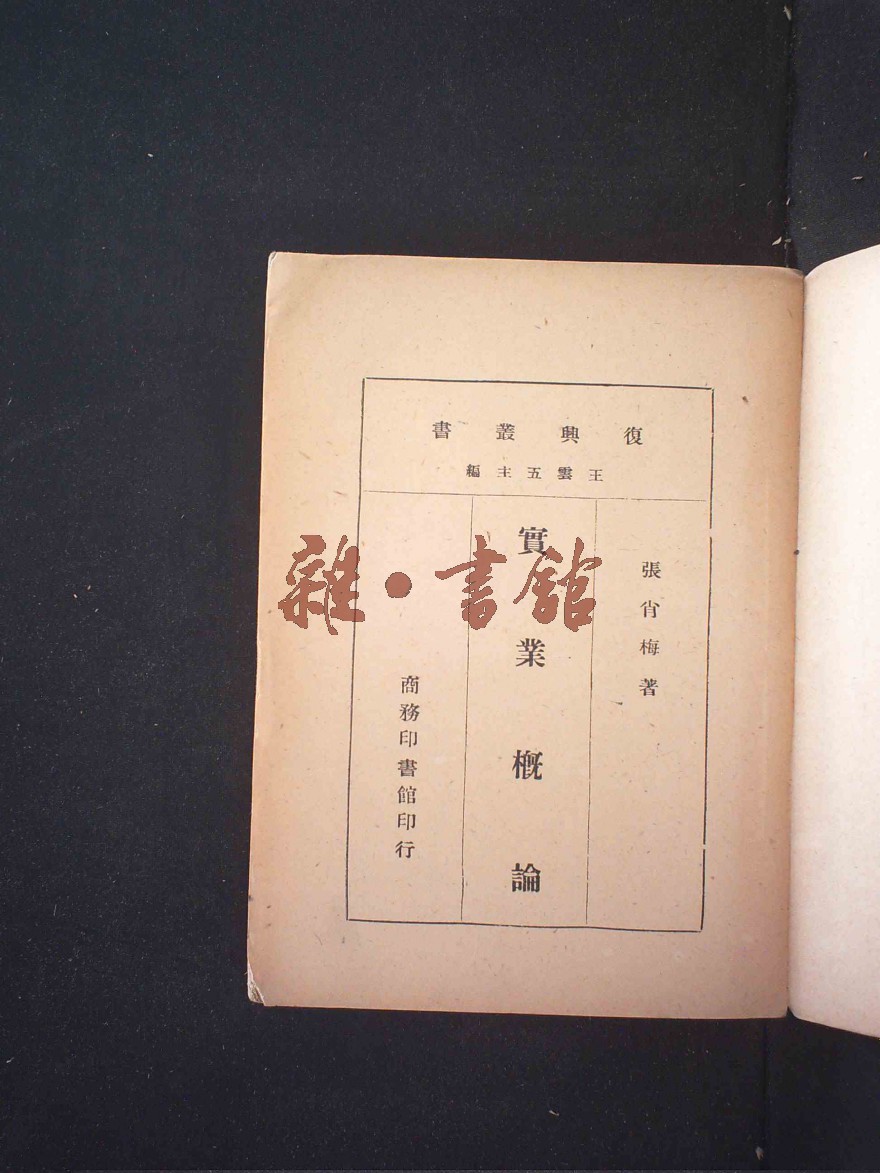 復興叢書
王雲五主編
張肖梅著
實業概論
商務印書館印行
雜·書館